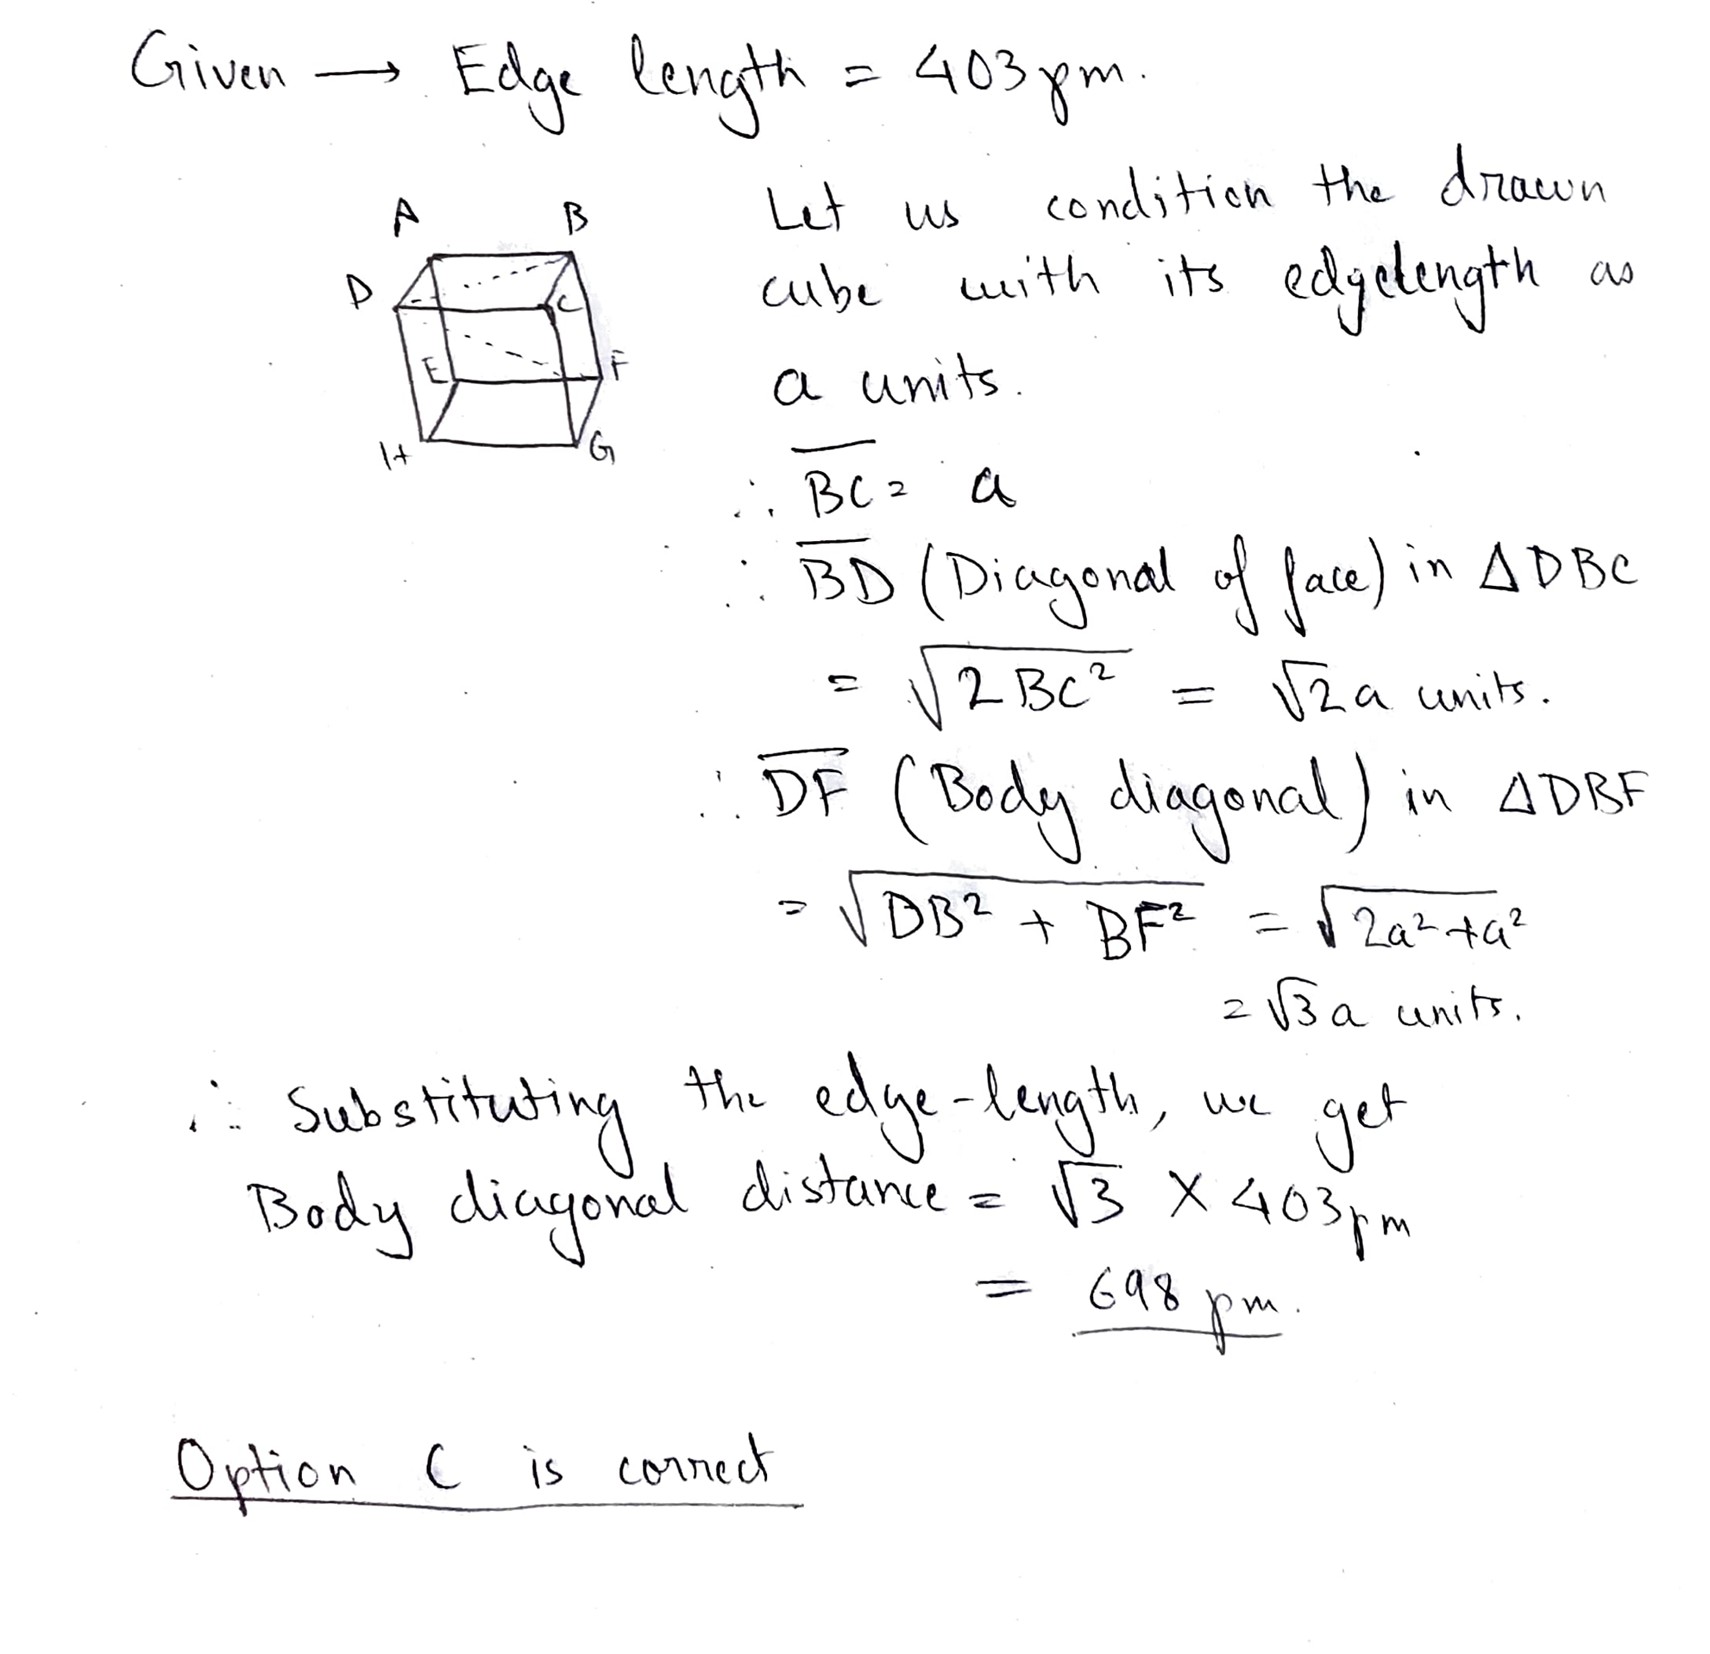 Given → Edge length = 403 pm.
A B
D C
E F
H G
Let us condition the drawn
cube with its edgelength as
a units.
∴ BC = a
∴ BD (Diagonal of face) in ΔDBC
= √2BC² = √2a units.
∴ DF (Body diagonal) in ΔDBF
= √DB² + BF² = √2a²+a²
= √3a units.
∴ Substituting the edge-length, we get
Body diagonal distance = √3 × 403pm
= 698 pm.
Option C is correct